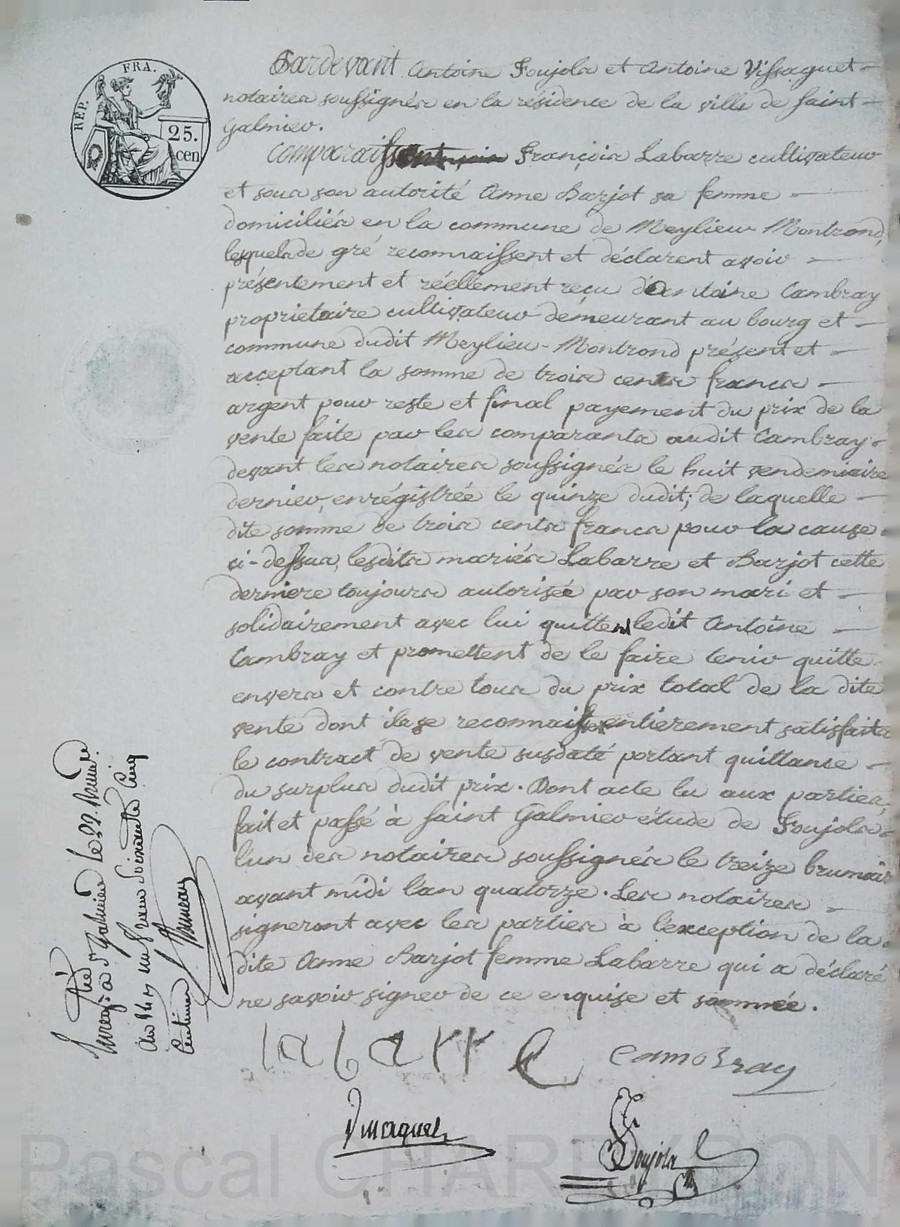 REP. FRA.
25.
cen
Pardevant Antoine Soujola et Antoine Vissaguet
notaires soussignés en la résidence de la ville de Saint
Galmier.
Comparaissent François Labarre cultivateur
et sous son autorité Anne Barjot sa femme
domiciliés en la commune de Meylieu Montrond,
lesquels de gré reconnaissent et déclarent avoir
présentement et réellement reçu d'Antoine Cambray
proprietaire cultivateur demeurant au bourg et
commune dudit Meylieu-Montrond présent et
acceptant la somme de trois cents francs
argent pour reste et final payement du prix de la
vente faite par les comparants audit Cambray
devant les notaires soussignés le huit vendemiaire
dernier, enrégistrée le quinze dudit; de laquelle
dite somme de trois cents francs pour la cause
ci-dessus, lesdits mariés Labarre et Barjot cette
derniere toujours autorisée par son mari et
solidairement avec lui quittent ledit Antoine
Cambray et promettent de le faire tenir quitte
envers et contre tous du prix total de la dite
vente dont ils se reconnaiss entierement satisfaits
le contract de vente susdaté portant quittance
du surplus dudit prix. Dont acte lu aux parties,
fait et passé à Saint Galmier étude de Soujola
l'un des notaires soussignés le treize brumair
avant midi l'an quatorze. Les notaires
signeront avec les parties à l'exception de la
dite Anne Barjot femme Labarre qui a déclaré
ne savoir signer de ce enquise et sommée.
Enreg. à St Galmier le 22 Brum.
an 14 un franc soixante cinq
centimes
labarre Cambray
Vissaguet Soujola
Pascal CHAREYRON